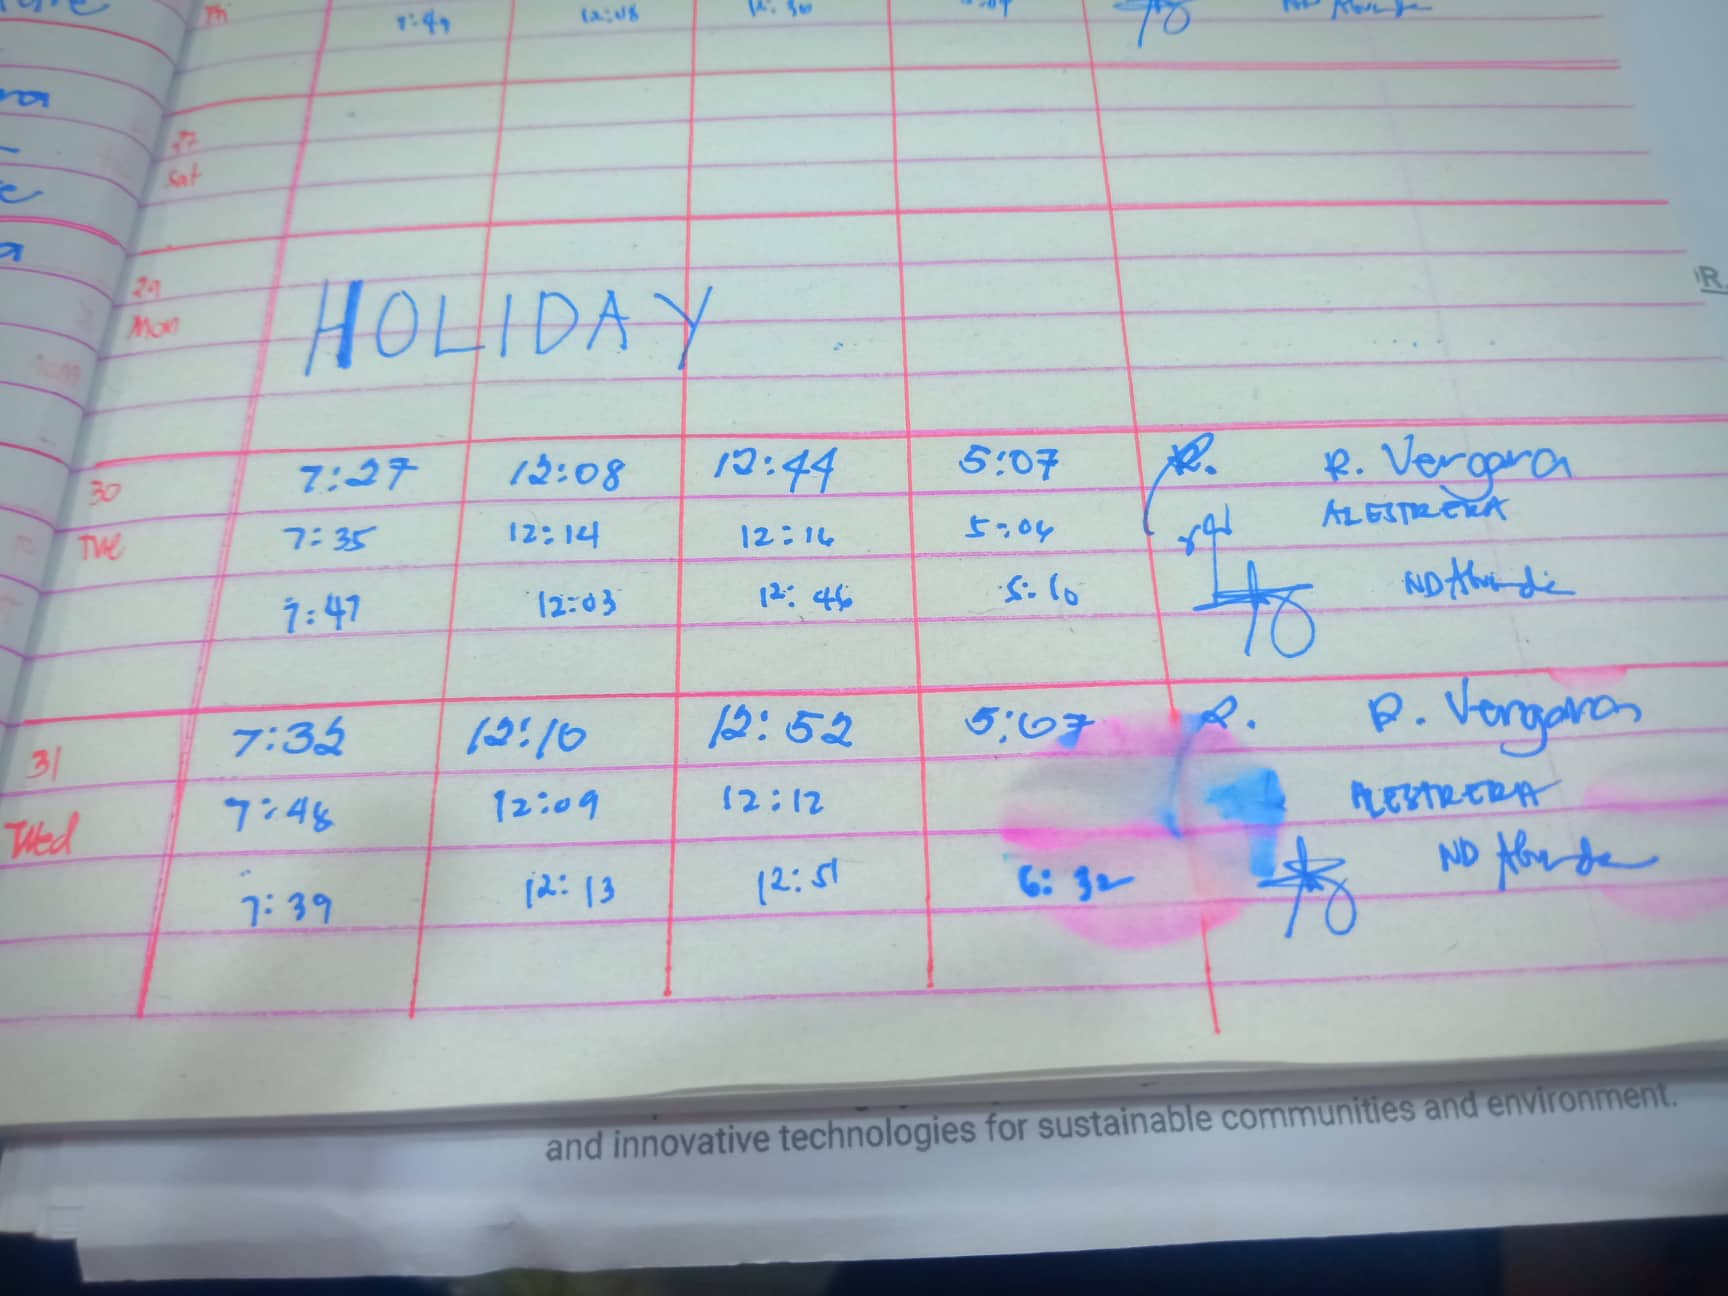 7:49 12:08 12:30
27
Sat
29
Mon
HOLIDAY
30 7:27 12:08 12:44 5:07 R. R. Vergara
Tue 7:35 12:14 12:16 5:04 ALESTRERA
7:47 12:03 12:46 5:10 ND
31 7:32 12:10 12:52 5:07 R. R. Vergara
Wed 7:48 12:09 12:12 ALESTRERA
7:39 12:13 12:51 6:32 ND
and innovative technologies for sustainable communities and environment.